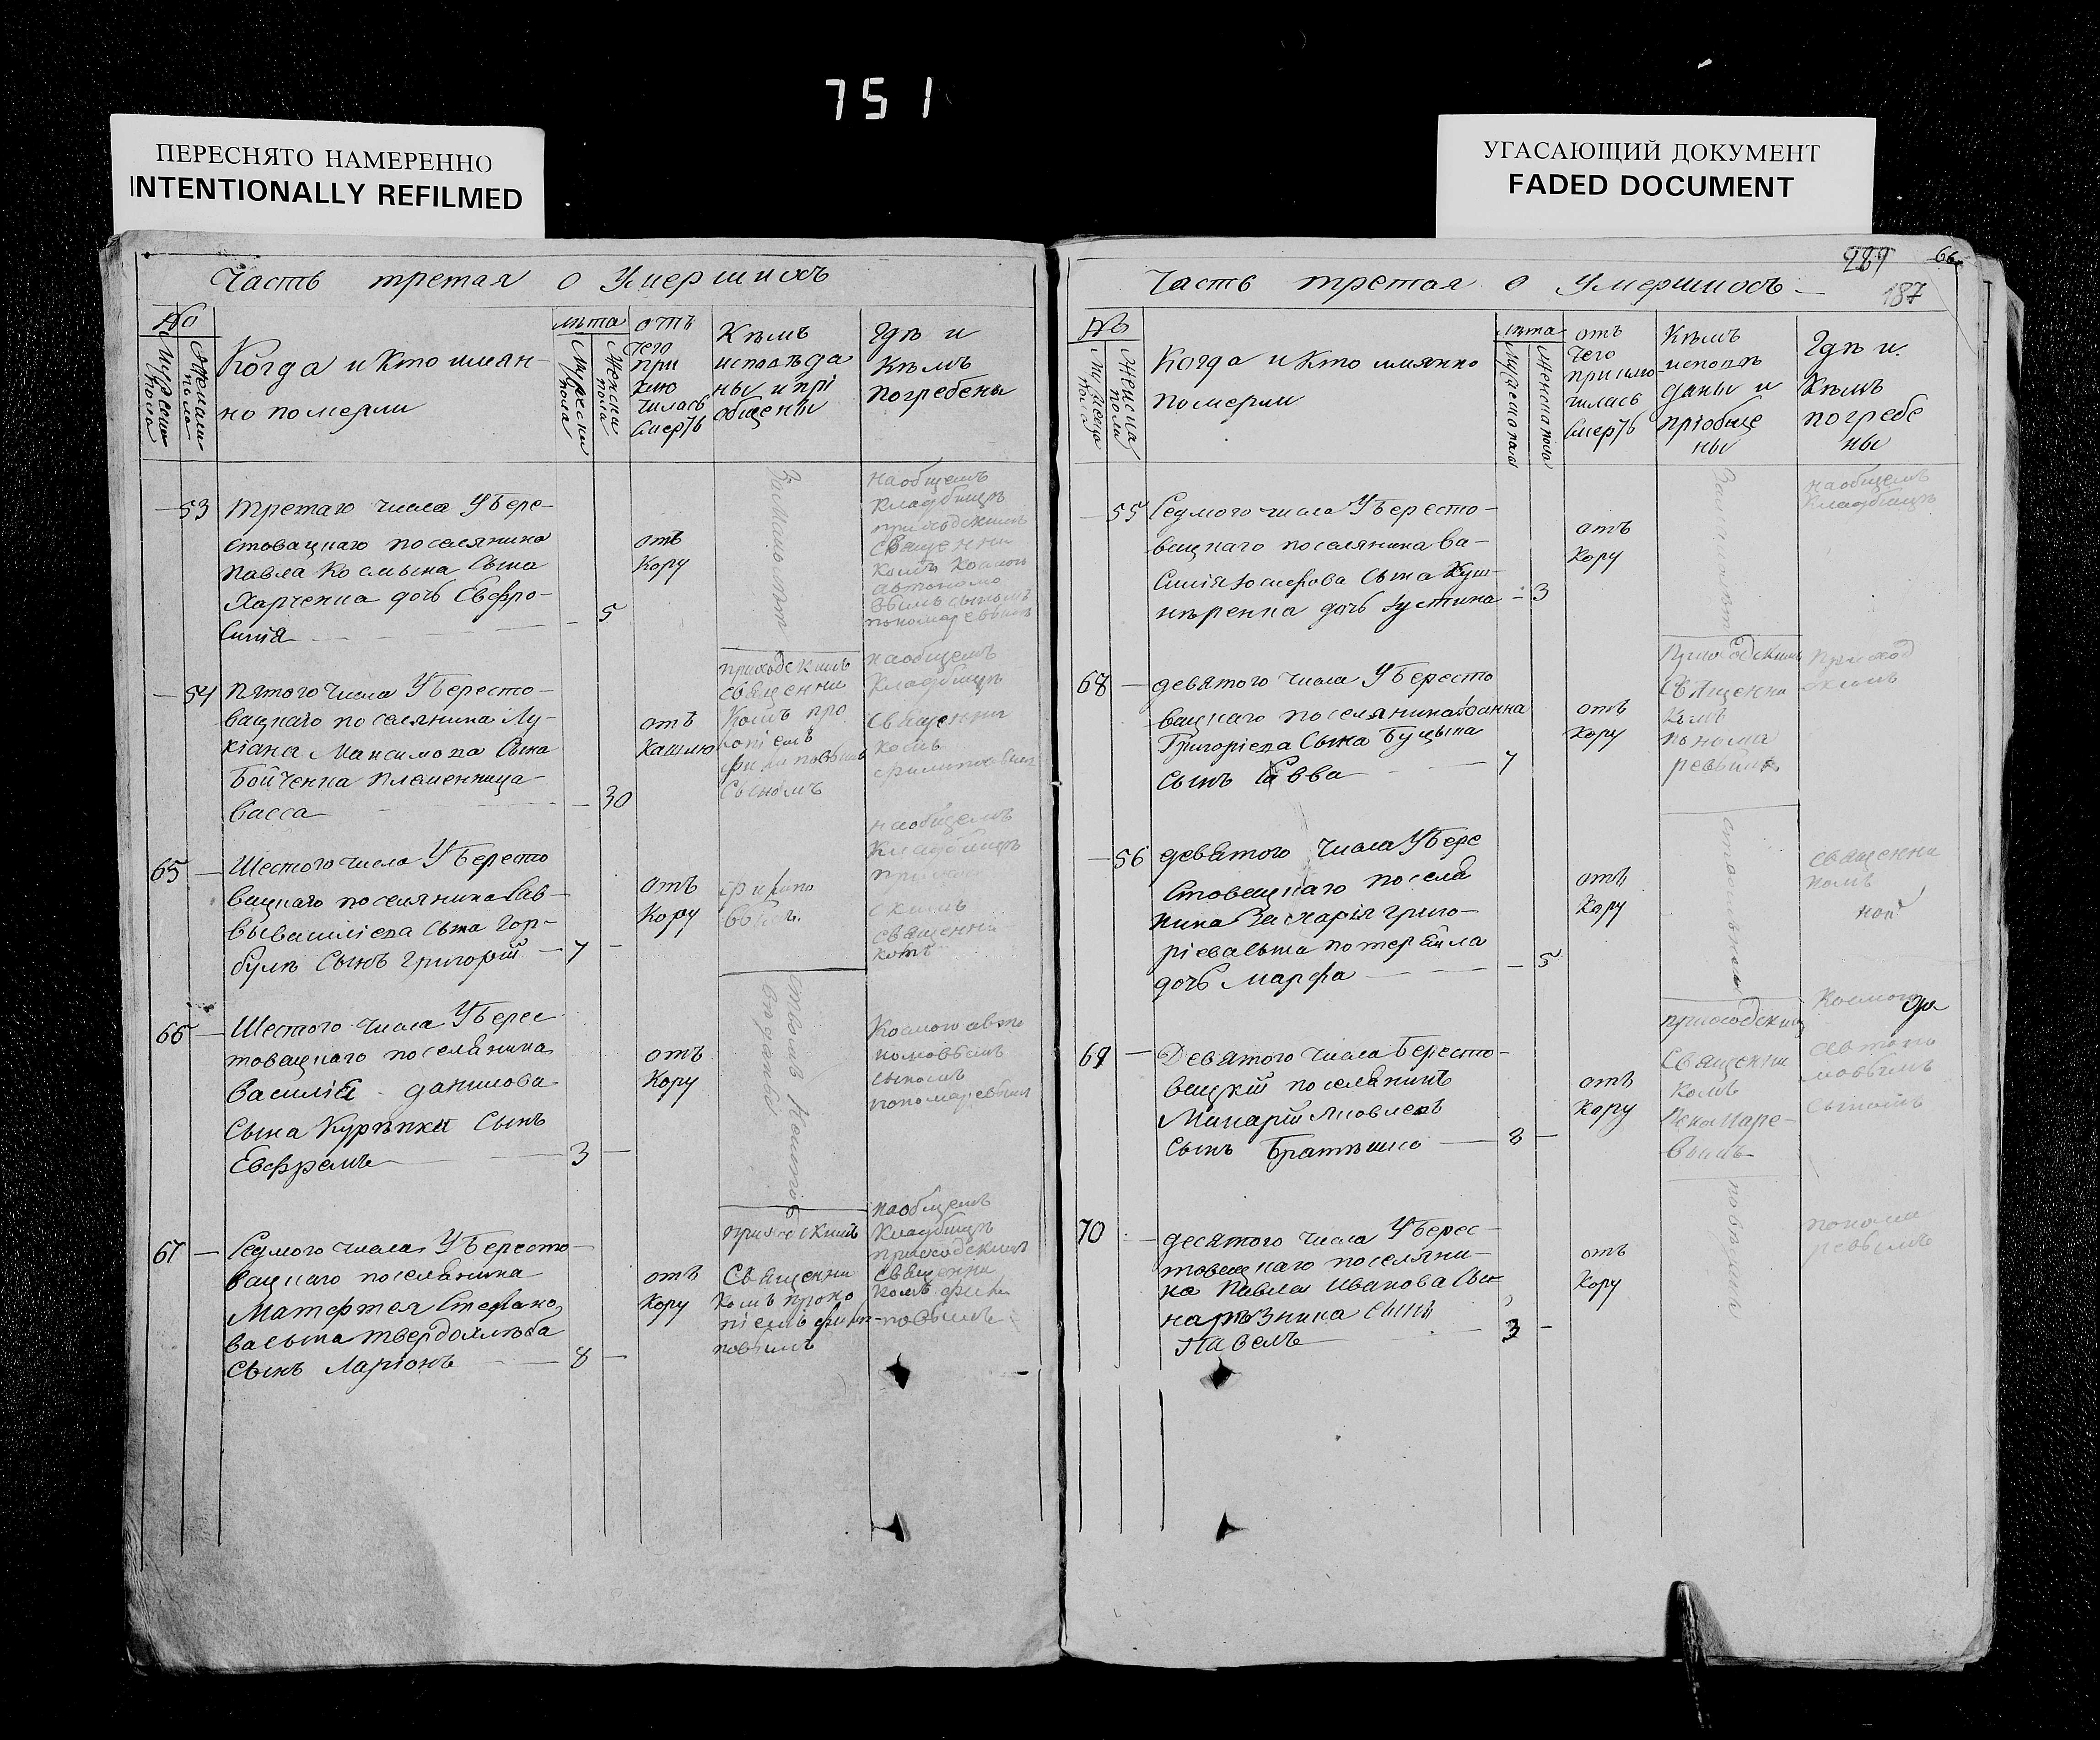 751
ПЕРЕСНЯТО НАМЕРЕННО
INTENTIONALLY REFILMED
УГАСАЮЩИЙ ДОКУМЕНТ
FADED DOCUMENT
Часть третая о Умершихъ
№
Мужески пола
Женски пола
Когда и кто имян-
но померли
лѣта
Мужески пола
Женски пола
отъ
чего
при
клю
чилась
смерть
Кѣмъ
исповѣда
ны и прі
общены
Гдѣ и
Кѣмъ
погребены
53 третаго числа У Бере-
стовацкаго поселянина
Павла Космина сына
Харченка дочь Евфро-
синія 5
отъ
кору
на общемъ
кладбищѣ
приходскимъ
священни
комъ Космою
автономо
вымъ сыномъ
пономаревымъ
54 пятого числа У Бересто-
вацкаго поселянина Лу-
кіана Максимова сына
Бойченка племенница
Васса 30
отъ
кашлю
приходскимъ
священни
комъ про
копіемъ
филиповымъ
сыномъ
на общемъ
кладбищѣ
священни
комъ
филиповымъ
65 Шестого числа У Бересто
вацкаго поселянина Сав-
вы василіева сына Гор-
булѣ сынъ григорій 7
отъ
кору
филипо
вымъ
на общемъ
кладбищѣ
приход
скимъ
священни
комъ
66 Шестого числа У Берес
товацкаго поселянина
Василія данилова
сына Курѣпки сынъ
Евфремъ 3
отъ
кору
Космою авто
номовымъ
сыномъ
пономаревымъ
67 Седмого числа У Бересто-
вацкаго поселянина
Матфея Стефано
ва сына твердохлѣба
сынъ Ларіонъ 8
отъ
кору
приходскимъ
священни
комъ проко
піемъ фили-
повымъ
на общемъ
кладбищѣ
приходскимъ
священни
комъ фили
повымъ
289 66
187
Часть третая о Умершихъ
№
Когда и кто имянно
померли
лѣта
отъ
чего
приклю-
чилась
смерть
Кѣмъ
исповѣ
даны и
пріобще
ны
Гдѣ и
Кѣмъ
погребе
ны
55 Седмого числа У Бересто-
вацкаго поселянина Ва-
силія Іосифова сына Куш-
нѣренка дочь Іустина 3
отъ
кору
на общемъ
кладбищѣ
68 девятого числа У Бересто
вацкаго поселянина Іоанна
Григоріева сына Буцына
сынъ Савва 7
отъ
кору
приходскимъ
священни
комъ
понома
ревымъ
приход
скимъ
56 девятого числа У Бере
стовацкаго поселя
нина Захарія григо-
ріева сына потеряйла
дочь марфа 5
отъ
кору
священни
комъ
69 Девятого числа Бересто-
вацкій поселянинъ
Макарій Яковлевъ
сынъ Братѣшко 8
отъ
кору
приходскимъ
священни
комъ
Пономаре-
вымъ
Космою
автоно
мовымъ
сыномъ
70 десятого числа У Берес-
товацкаго поселяни-
на Павла Иванова сы-
на рѣзника сынъ
Павелъ 3
отъ
кору
понома
ревымъ